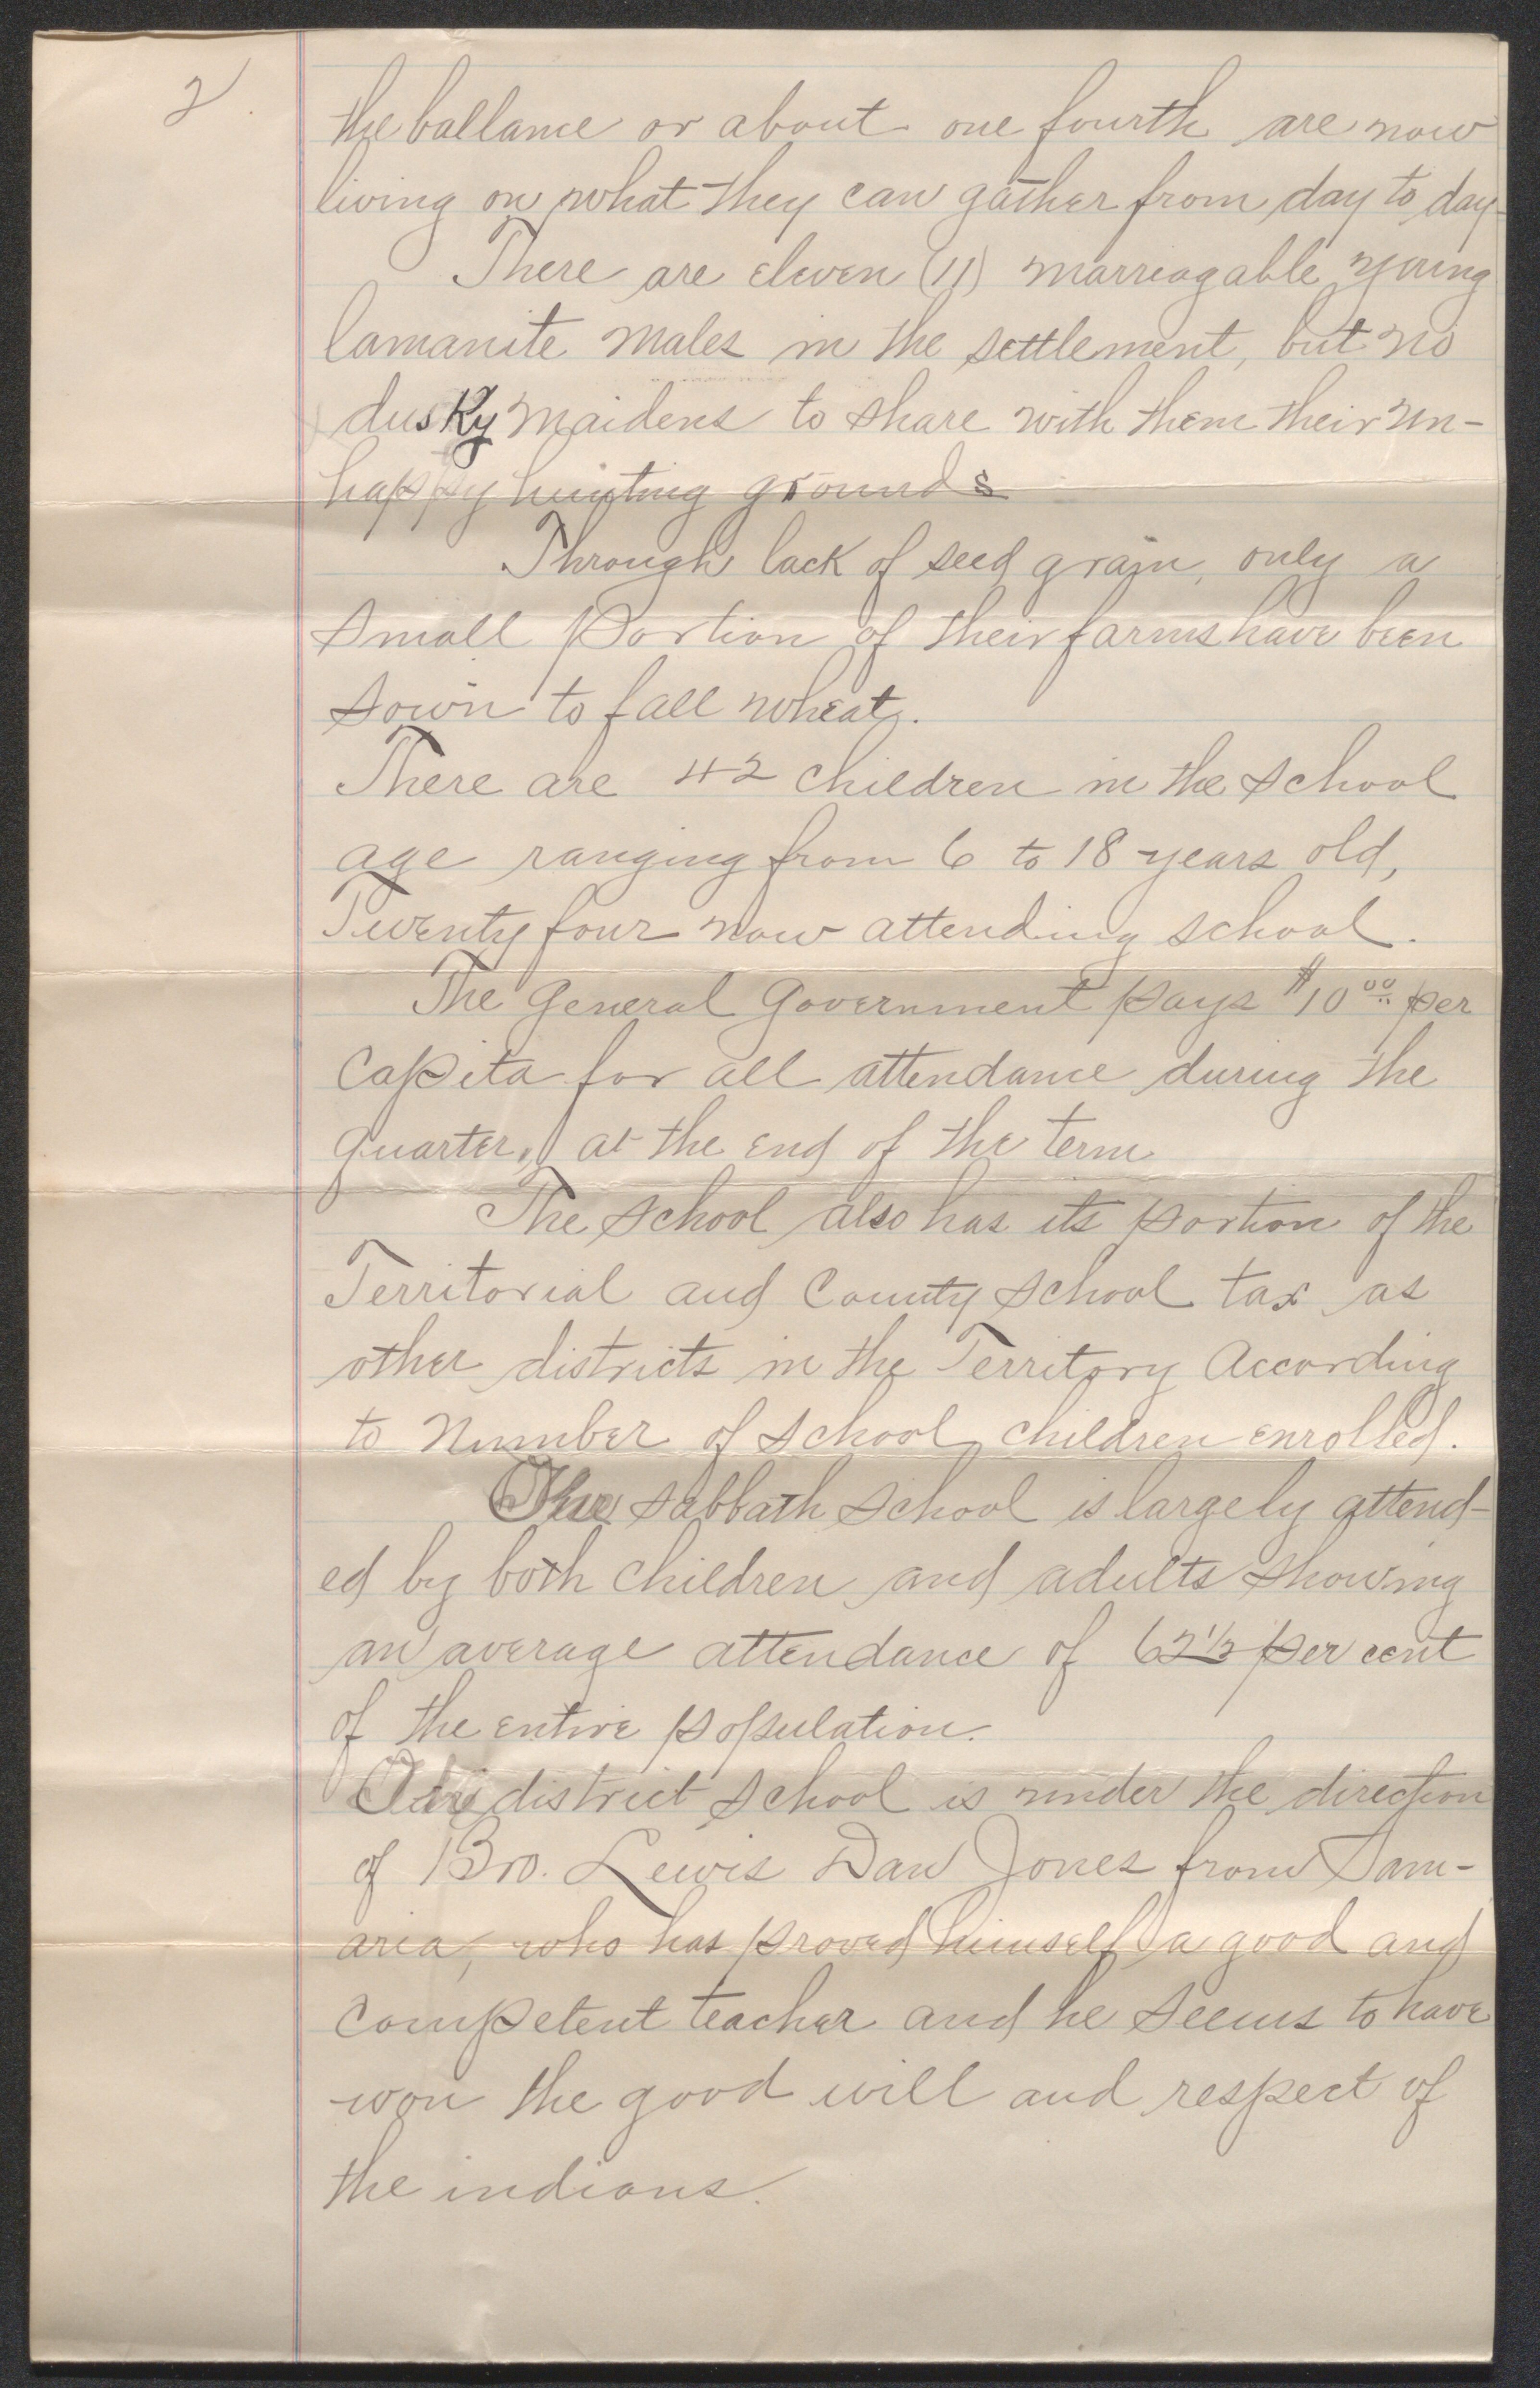 2.
the ballance or about one fourth are now
living on what they can gather from day to day
There are eleven (11) marreagable young
lamanite males in the settlement, but no
dusky maidens to share with them their un-
happy hunting grounds
Through lack of seed grain, only a
small portion of their farms have been
sown to fall wheat.
There are 42 children in the school
age ranging from 6 to 18 years old,
Twenty four now attending school.
The General Government pays $10.00 per
Capita for all attendance during the
quarter, at the end of the term
The school also has its portion of the
Territorial and County school tax as
other districts in the Territory According
to number of school children enrolled.
The sabbath school is largely attend-
ed by both children and adults showing
an average attendance of 62½ per cent
of the entire population.
Our district school is under the direction
of Bro. Lewis Dan Jones from Sam-
aria, who has proved himself a good and
competent teacher and he seems to have
won the good will and respect of
the indians.